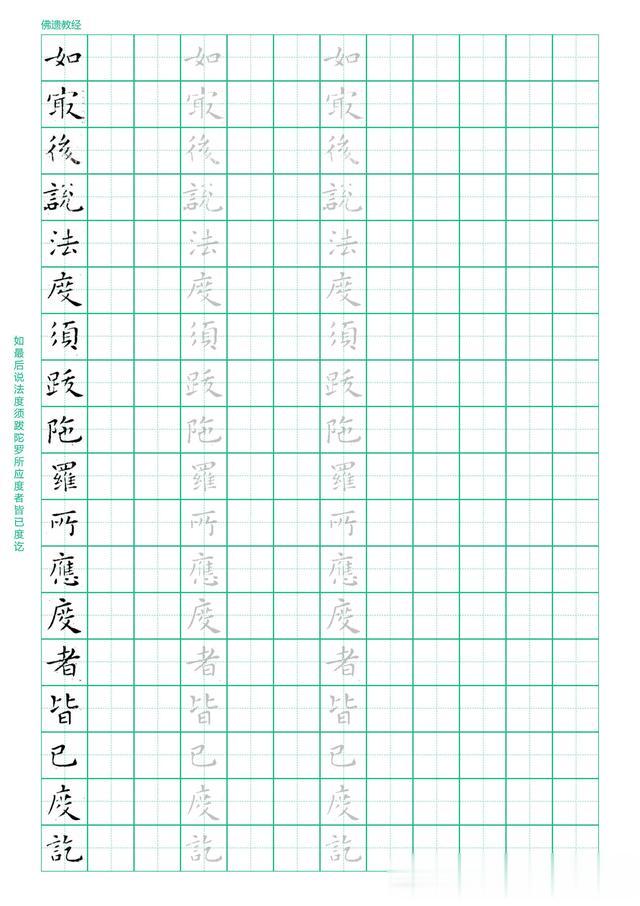 佛遗教经
如最后说法度须跋陀罗所应度者皆已度讫
如㝡後說法度須跋陁羅所應度者皆已度訖
如㝡後說法度須跋陁羅所應度者皆已度訖
如㝡後說法度須跋陁羅所應度者皆已度訖